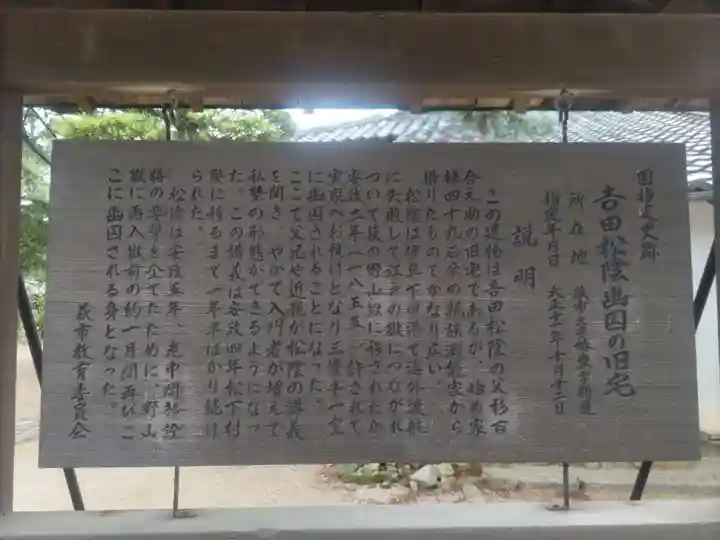 国指定史跡
吉田松陰幽囚の旧宅
所在地 萩市大字椿東字新道
指定年月日 大正十一年十月十二日
説明
この建物は吉田松陰の父杉百
合之助の旧宅であるが、始め家
禄四十九石余の新族瀬能家から
借りたものでかなり広い。
松陰は伊豆下田港で海外渡航
に失敗して江戸の獄につながれ
ついで萩の野山獄に移されたが
安政二年(一八五五)、許されて
実家へお預けとなり三畳半一室
に幽囚されることになった。
ここで父兄や近親が松陰の講義
を聞き、やがて入門者が増えて
私塾の形態ができるようになっ
た。この講義は安政四年松下村
塾に移るまで一年半ばかり続け
られた。
松陰は安政五年、老中間部詮
勝の要撃を企てたために、野山
獄に再入獄前の約一月間再びこ
こに幽囚される身となった。
萩市教育委員会